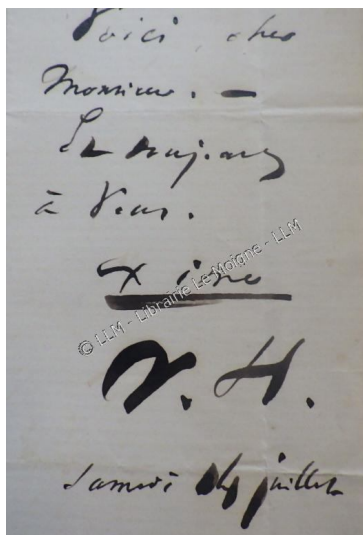 Voici, cher
Monsieur. —
Et toujours
à Vous.
ex imo
V. H.
Samedi juillet
© LLM - Librairie Le Moigne - LLM